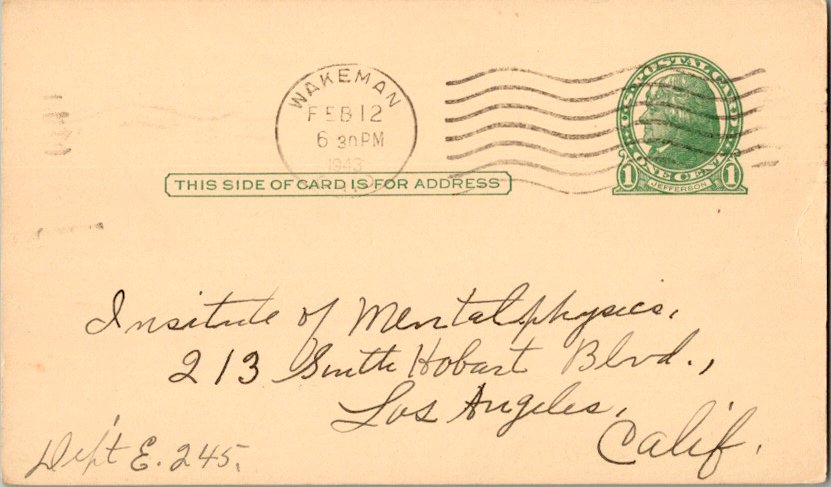 WAKEMAN
FEB 12
6 30 PM
1943
U.S. POSTAL CARD
ONE CENT
1 JEFFERSON 1
THIS SIDE OF CARD IS FOR ADDRESS
Insitute of Mentalphysics,
213 South Hobart Blvd.,
Los Angeles,
Calif.
Dep't E. 245.